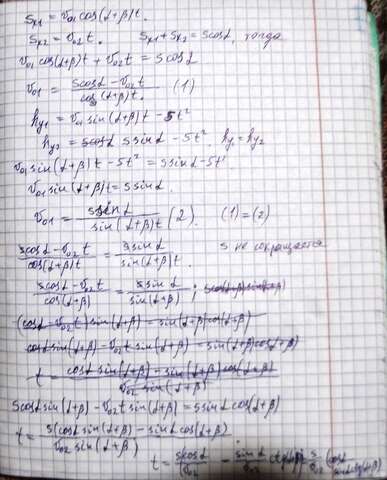 Sx1 = v01 cos(α+β)t.
Sx2 = v02 t. Sx1 + Sx2 = s cosα, тогда
v01 cos(α+β)t + v02 t = s cosα
v01 = (s cosα − v02 t)/(cos(α+β)t) (1)
hy1 = v01 sin(α+β)t − 5t²
hy2 = s sinα − 5t². hy1 = hy2
v01 sin(α+β)t − 5t² = s sinα − 5t²
v01 sin(α+β)t = s sinα.
v01 = (s sinα)/(sin(α+β)t) (2). (1) = (2)
(s cosα − v02 t)/(cos(α+β)t) = (s sinα)/(sin(α+β)t) s не сокращается
(s cosα − v02 t)/(cos(α+β)) = (s sinα)/(sin(α+β));
(cosα − v02 t) sin(α+β) = sin(α+β) cos(α+β)
cosα sin(α+β) − v02 t sin(α+β) = sin(α+β) cos(α+β)
t = (cosα sin(α+β) − sin(α+β) cos(α+β))/(v02 sin(α+β))
s cosα sin(α+β) − v02 t sin(α+β) = s sinα cos(α+β)
t = (s(cosα sin(α+β) − sinα cos(α+β)))/(v02 sin(α+β))
t = (s cosα)/v02 −